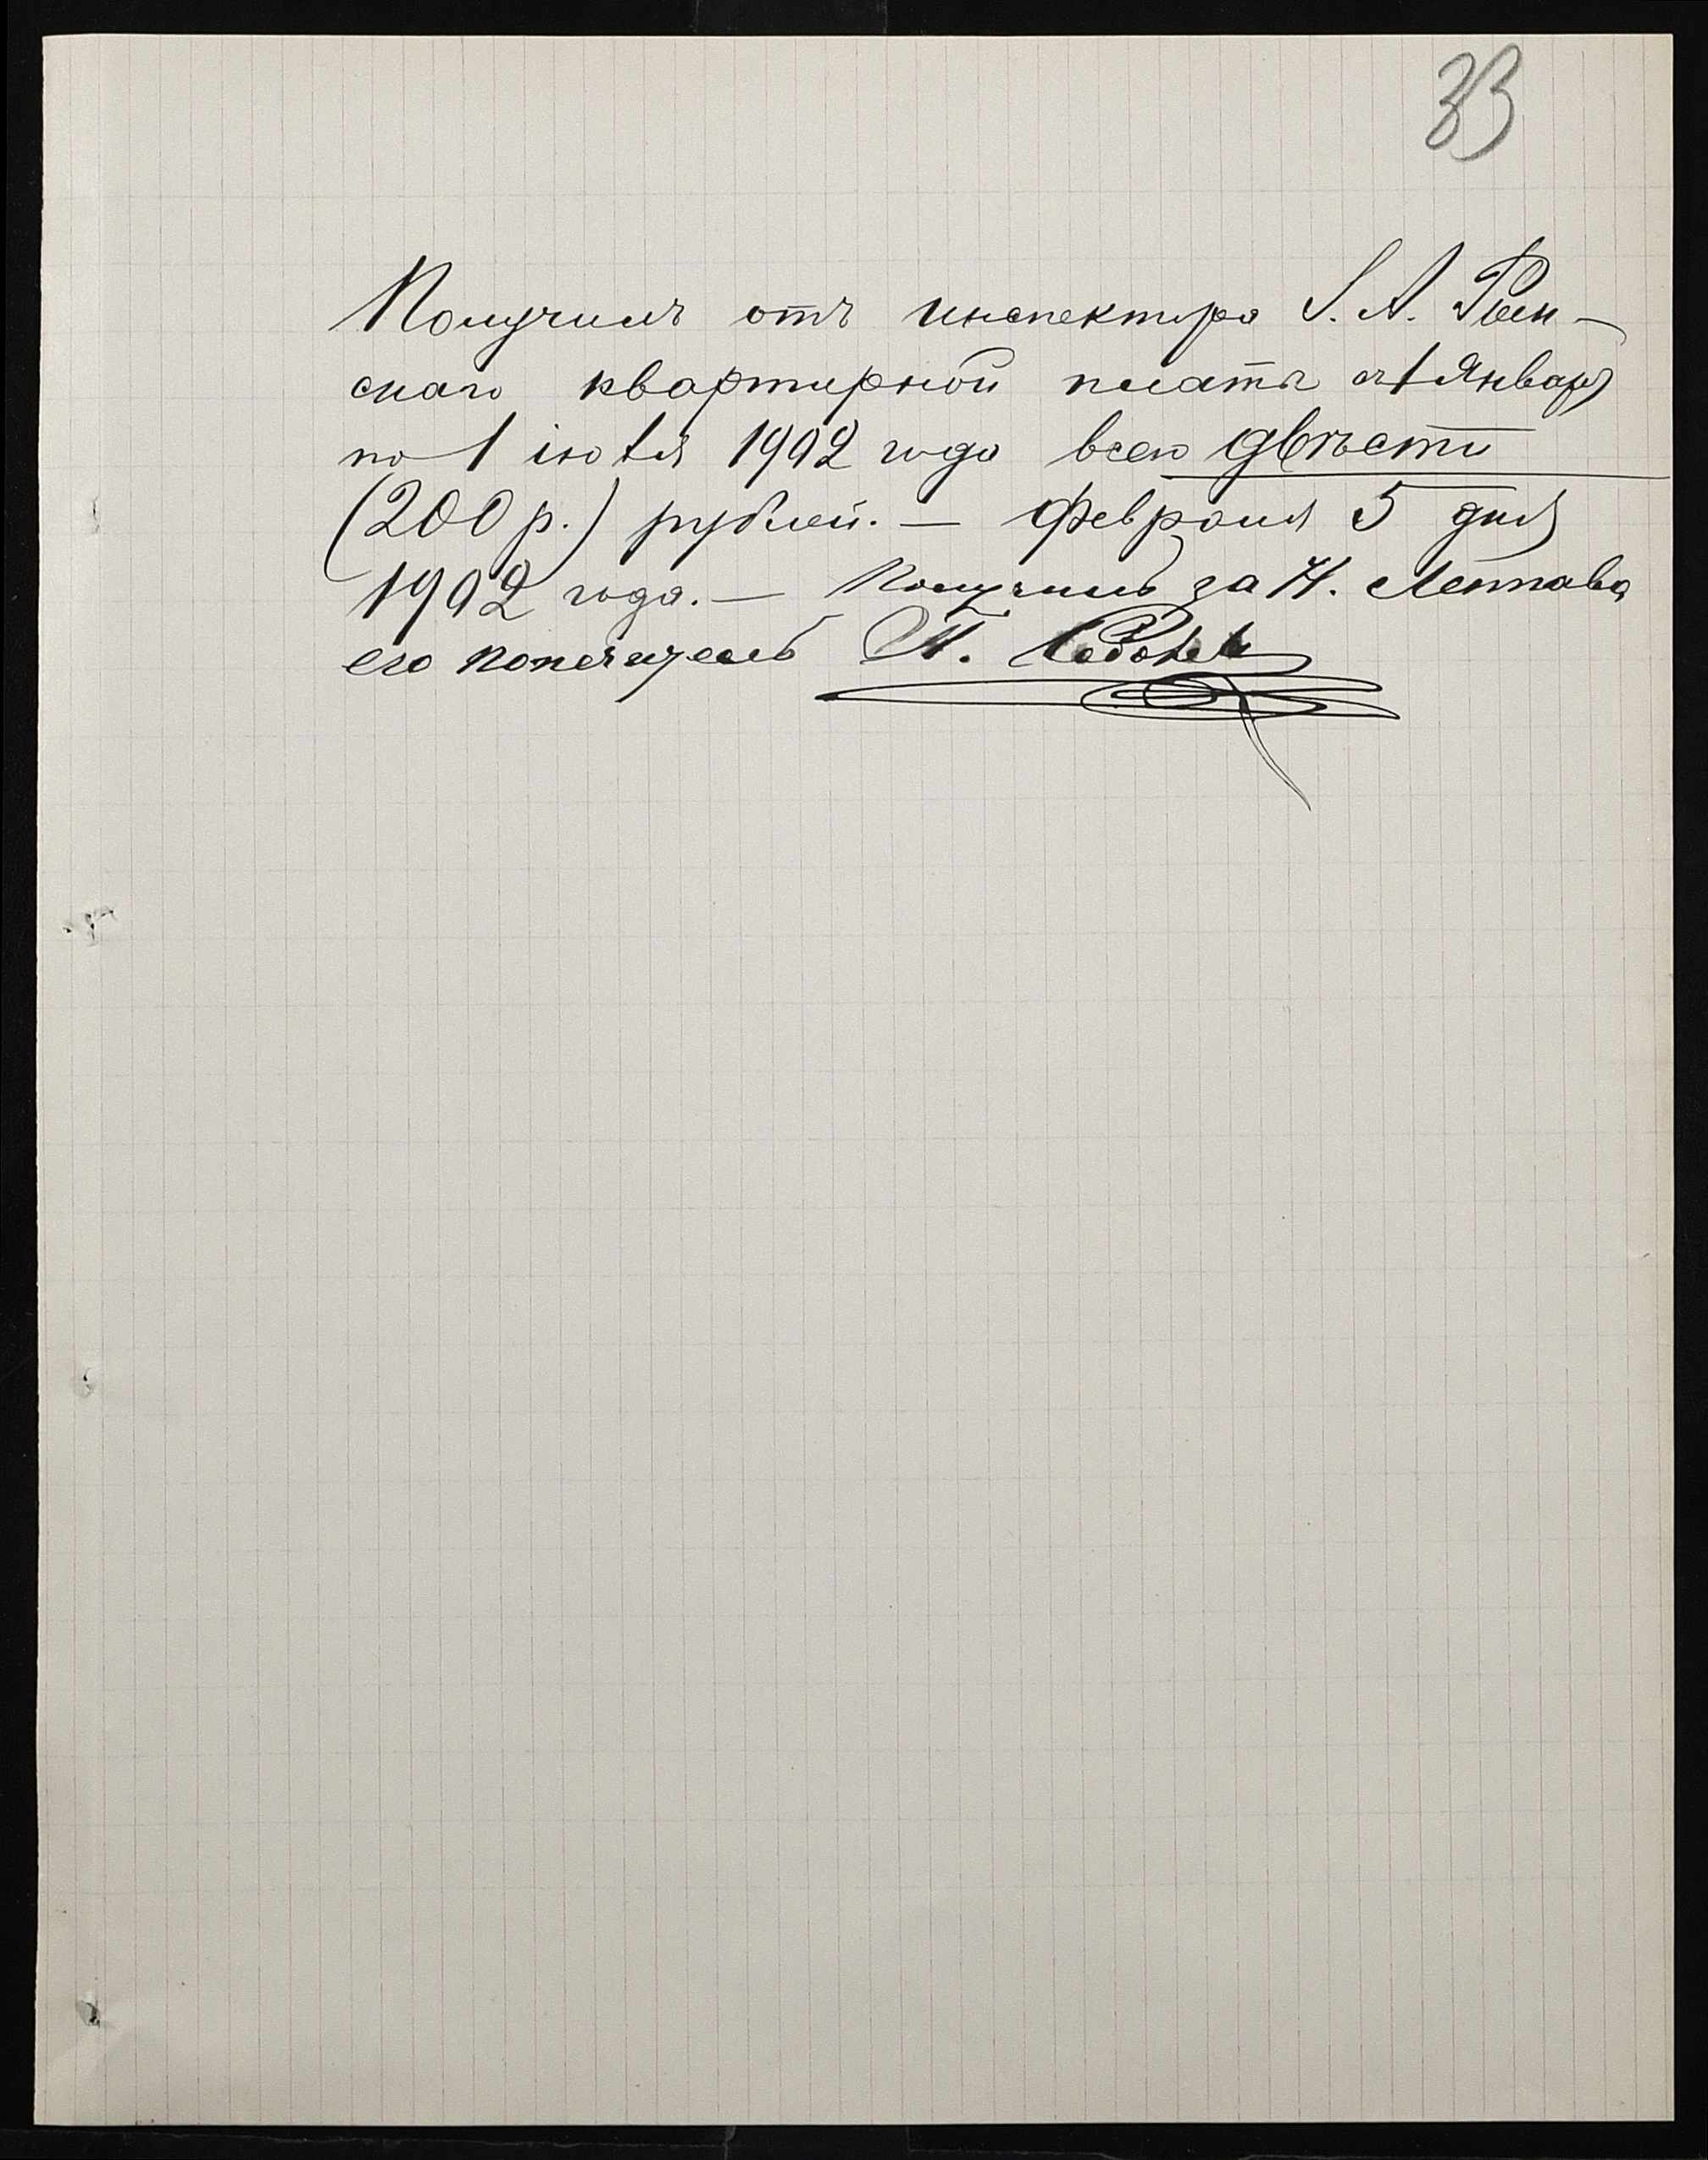 33
Получилъ отъ инспектора І. А. Роен-
скаго квартирной платы съ 1 Января
по 1 іюля 1902 года всего двѣсти
(200 р.) рублей. — Февраля 5 дня
1902 года. — Получилъ за Н.
его попечитель П.